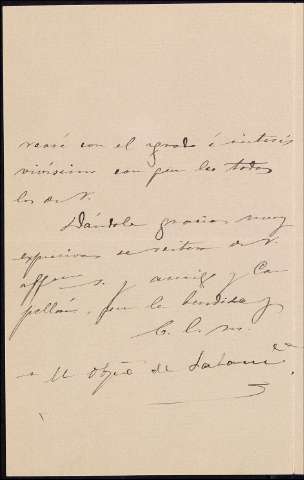 rearé con el agrado é interés
vivísimo con que leo todos
los de V.
Dándole gracias muy
expresivas se reitera de V.
affmo. s. y amigo y Ca-
pellán, que le bendice y
b. l. m.
El Obpo de